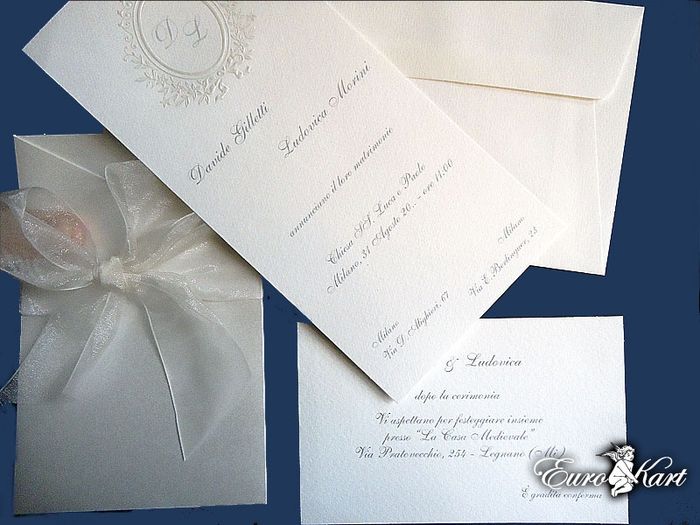 D L
Davide Gilletti
Ludovica Morini
annunciano il loro matrimonio
Chiesa SS. Luca e Paolo
Milano, 31 Agosto 20.. - ore 11:00
Milano
Via D. Alighieri, 67
Milano
Via E. Berlinguer, 23
& Ludovica
dopo la cerimonia
Vi aspettano per festeggiare insieme
presso "La Casa Medievale"
Via Pratovecchio, 254 - Legnano (Mi)
È gradita conferma
Euro Kart